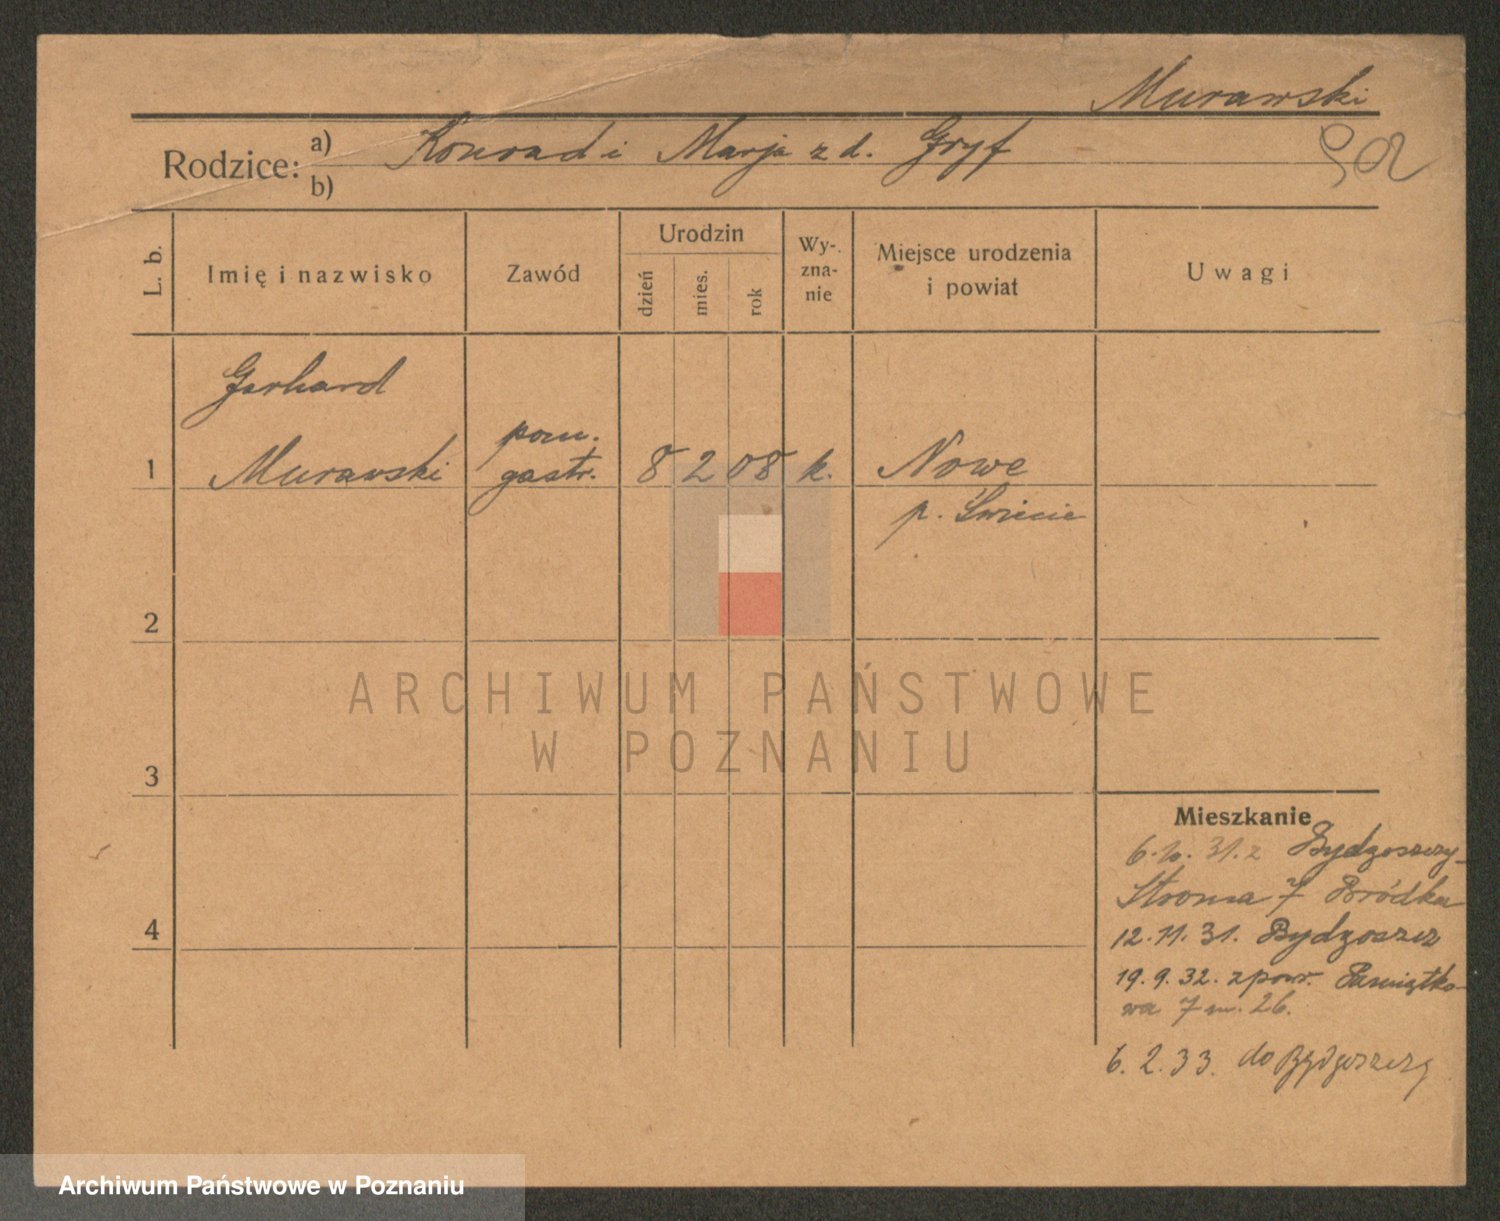 Murawski
Rodzice: a) Konrad i Marja z d. Gryf
b)
L. b.
Imię i nazwisko
Zawód
Urodzin
dzień
mies.
rok
Wy-
zna-
nie
Miejsce urodzenia
i powiat
Uwagi
Gerhard
1 Murawski
pom.
gastr.
8 2 08 k.
Nowe
p. Świecie
2
3
4
Mieszkanie
6.10.31. z Bydgoszczy
Stroma 7 Bródka
12.11.31. Bydgoszcz
19.9.32. z pow. Pamiątko-
wa 7 m. 26.
6.2.33. do Bydgoszczy
ARCHIWUM PAŃSTWOWE
W POZNANIU
Archiwum Państwowe w Poznaniu